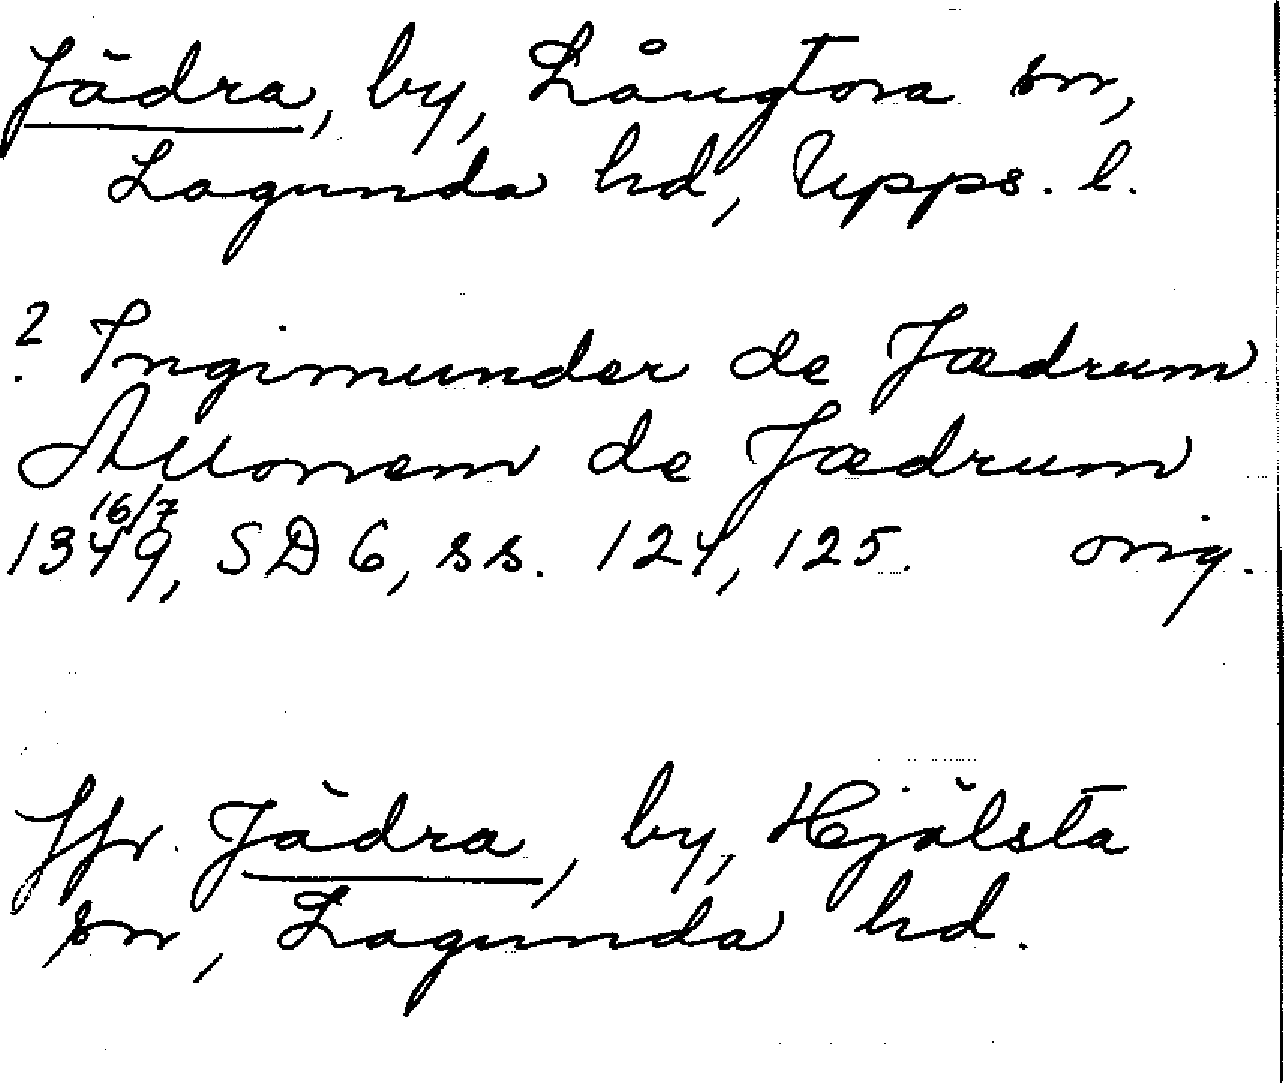 Jädra, by, Långtora sn,
Lagunda hd, Upps. l.
? Ingimunder de Jædrum
de Jædrum
16/7
1349, SD 6, ss. 124, 125. orig.
Jfr. Jädra, by, Hjälsta
sn, Lagunda hd.